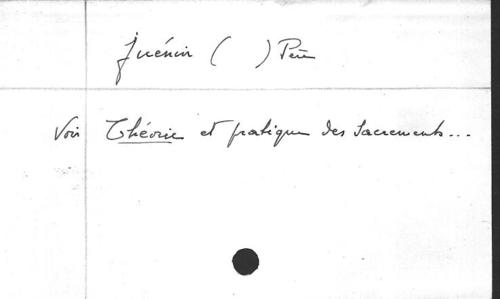 Juénin ( ) Père
Voir Théorie et pratique des Sacrements...